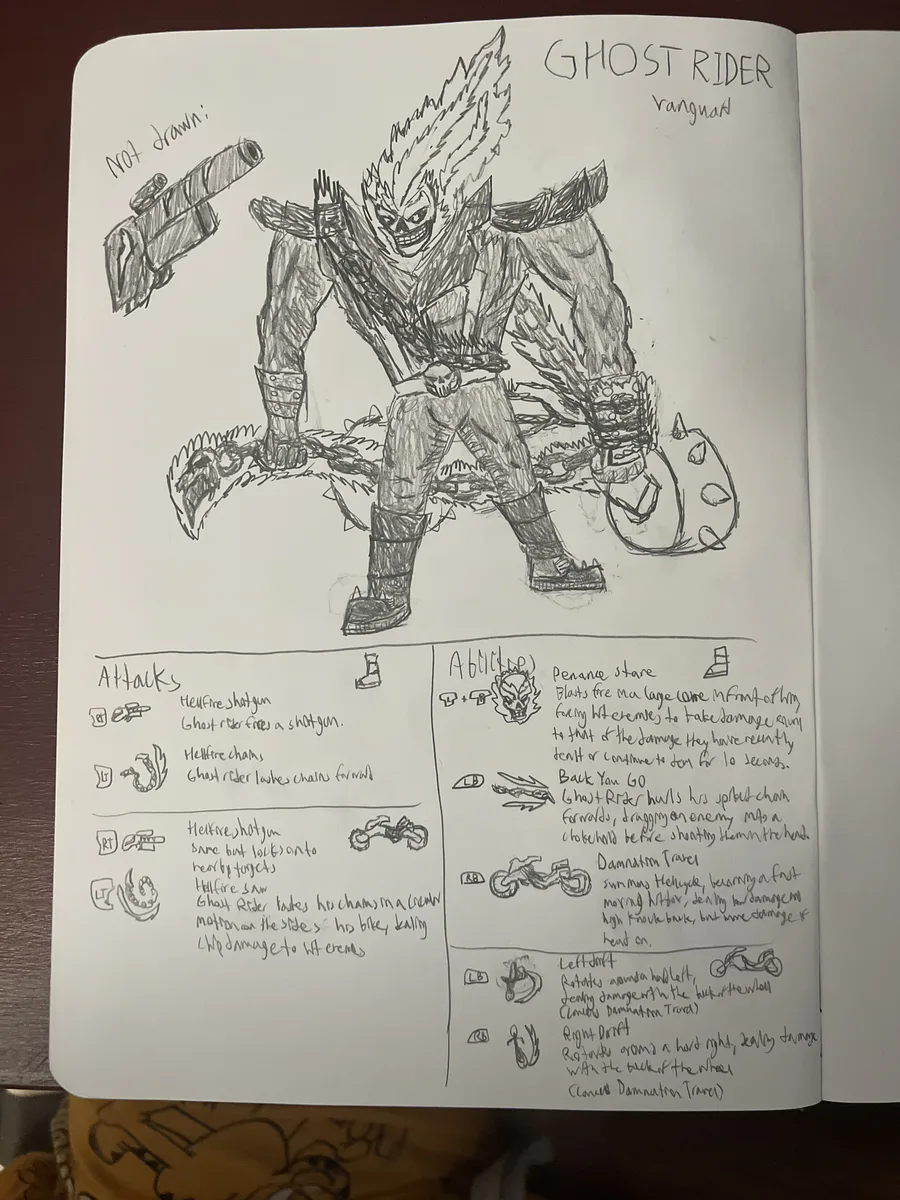 GHOST RIDER
vanguard
Not drawn:
Attacks
RT
Hellfire shotgun
Ghost rider fires a shotgun.
LT
Hellfire chains
Ghost rider lashes chains forward
RT
Hellfire shotgun
same but locks onto
nearby targets
LT
Hellfire saw
Ghost Rider lashes his chains in a circular
motion on the sides of his bike, dealing
chip damage to hit enemies
Abilities
Penance stare
Blasts fire in a large cone in front of him,
forcing hit enemies to take damage equal
to that of the damage they have recently
dealt or continue to deal for 10 seconds.
LB
Back You GO
Ghost Rider hurls his spiked chain
forwards, dragging an enemy into a
chokehold before shooting them in the head.
RB
Damnation Travel
summons Hellcycle, becoming a fast
moving hitbox, dealing low damage and
high knock back, but more damage if
head on.
LB
Left drift
Rotates around a hard left,
dealing damage with the back of the wheel
(Cancels Damnation Travel)
Rb
Right Drift
Rotates around a hard right, dealing damage
with the back of the wheel
(Cancels Damnation Travel)